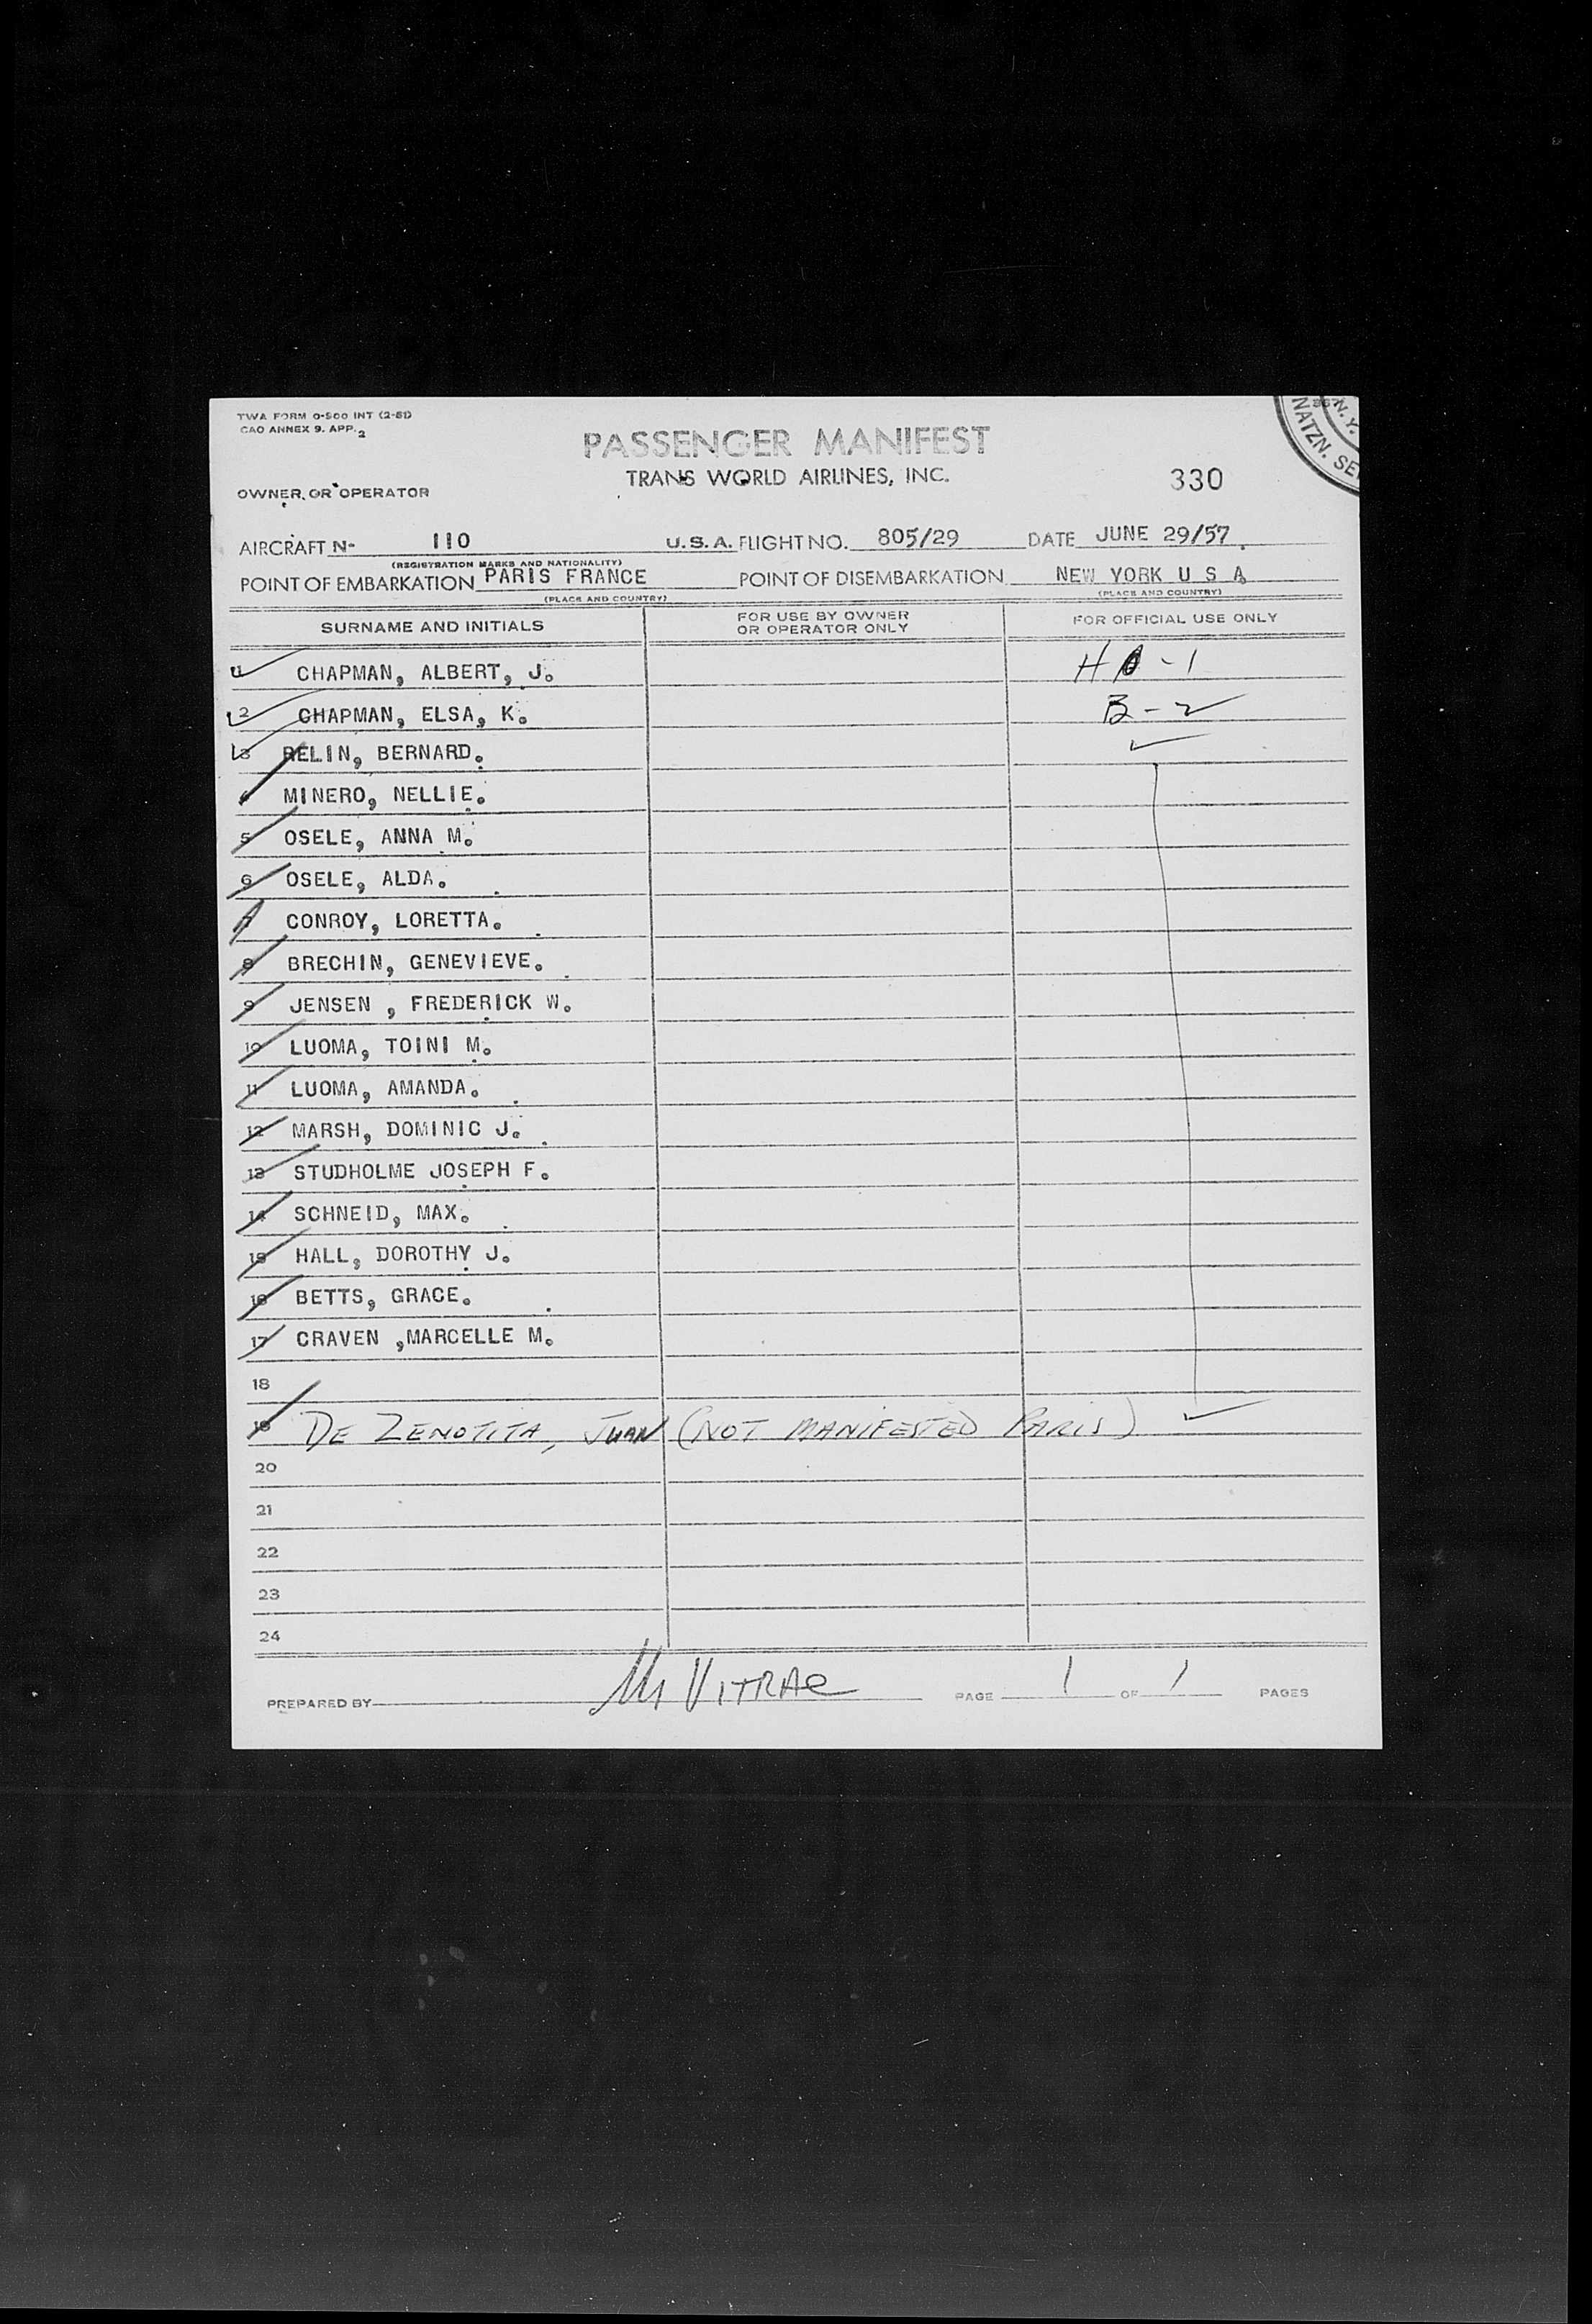 TWA FORM O-500 INT (2-51)
CAO ANNEX 9. APP. 2
PASSENGER MANIFEST
N. Y.
NATZN. SE
TRANS WORLD AIRLINES, INC.
330
OWNER OR OPERATOR
AIRCRAFT N- 110 U.S.A. FLIGHT NO. 805/29 DATE JUNE 29/57.
(REGISTRATION MARKS AND NATIONALITY)
POINT OF EMBARKATION PARIS FRANCE POINT OF DISEMBARKATION NEW YORK U S A
(PLACE AND COUNTRY) (PLACE AND COUNTRY)
SURNAME AND INITIALS FOR USE BY OWNER OR OPERATOR ONLY FOR OFFICIAL USE ONLY
1 CHAPMAN, ALBERT, J. -1
2 CHAPMAN, ELSA, K. B-2
3 BELIN, BERNARD.
4 MINERO, NELLIE.
5 OSELE, ANNA M.
6 OSELE, ALDA.
7 CONROY, LORETTA.
8 BRECHIN, GENEVIEVE.
9 JENSEN , FREDERICK W.
10 LUOMA, TOINI M.
11 LUOMA, AMANDA.
12 MARSH, DOMINIC J.
13 STUDHOLME JOSEPH F.
14 SCHNEID, MAX.
15 HALL, DOROTHY J.
16 BETTS, GRACE.
17 CRAVEN ,MARCELLE M.
18
19 DE ZENOTITA, JUAN (NOT MANIFESTED PARIS)
20
21
22
23
24
PREPARED BY VITRAC PAGE 1 OF 1 PAGES